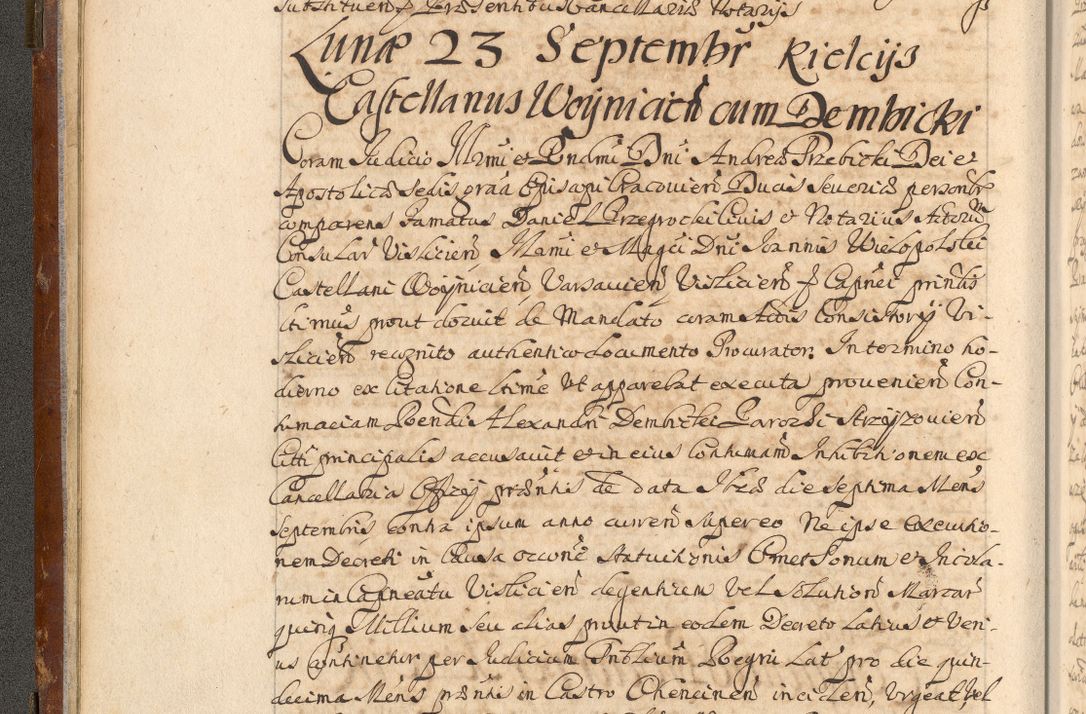 Lunæ 23 Septembr̃ Kielcijs
Castellanus Woÿnicien̄ cum Dembicki
Coram Judicio Illr̃mi et R̃ndmi Dñi Andreæ Trzebicki Dei et
Apostolicæ Sedis gr̃aa Episcopi Cracovien̄ Ducis Severiæ personłr
comparens Famatus Daniel Grzegrocki Civis et Notarius Actorũ
Consular Vislicien̄ Illr̃mi et Magci Dñi Joannis Wielopolski
Castellani Woÿnicien̄ Varsavien̄ Vislicien̄ Capnei princlis
ltimus prout docuit de Mandato coram Actis Consistorÿ Vi-
slicien̄ recognito authentico documento Procurator; In termino ho-
dierno ex Citatione ltime Ut apparebat executa provenien̄ Con-
tumaciam Rvendi Alexandri Dembicki Parochi Strzyzovien̄
Citti principalis accusavit et in eius Contumam̄ Inhibitionem ex
Cancellaria Offcÿ præntis de data Ibᵈ die septima Mens
Septembris contra ipsum anno curren̄ super eo Ne ipse executio-
nem Decreti in Causa ocone Statuitionis Cmetsonum et Incola-
rum in Capneatu Vislicien̄ degentium vel Solution̄ Marcar̄
quinq Millium seu alias prout in eodem Decreto latius et veri-
us continetur per Judicium Sntblium Regni Lat pro die quin-
decima Mens præntis in Castro Chencinen̄ inciden̄, Urgeat, vel